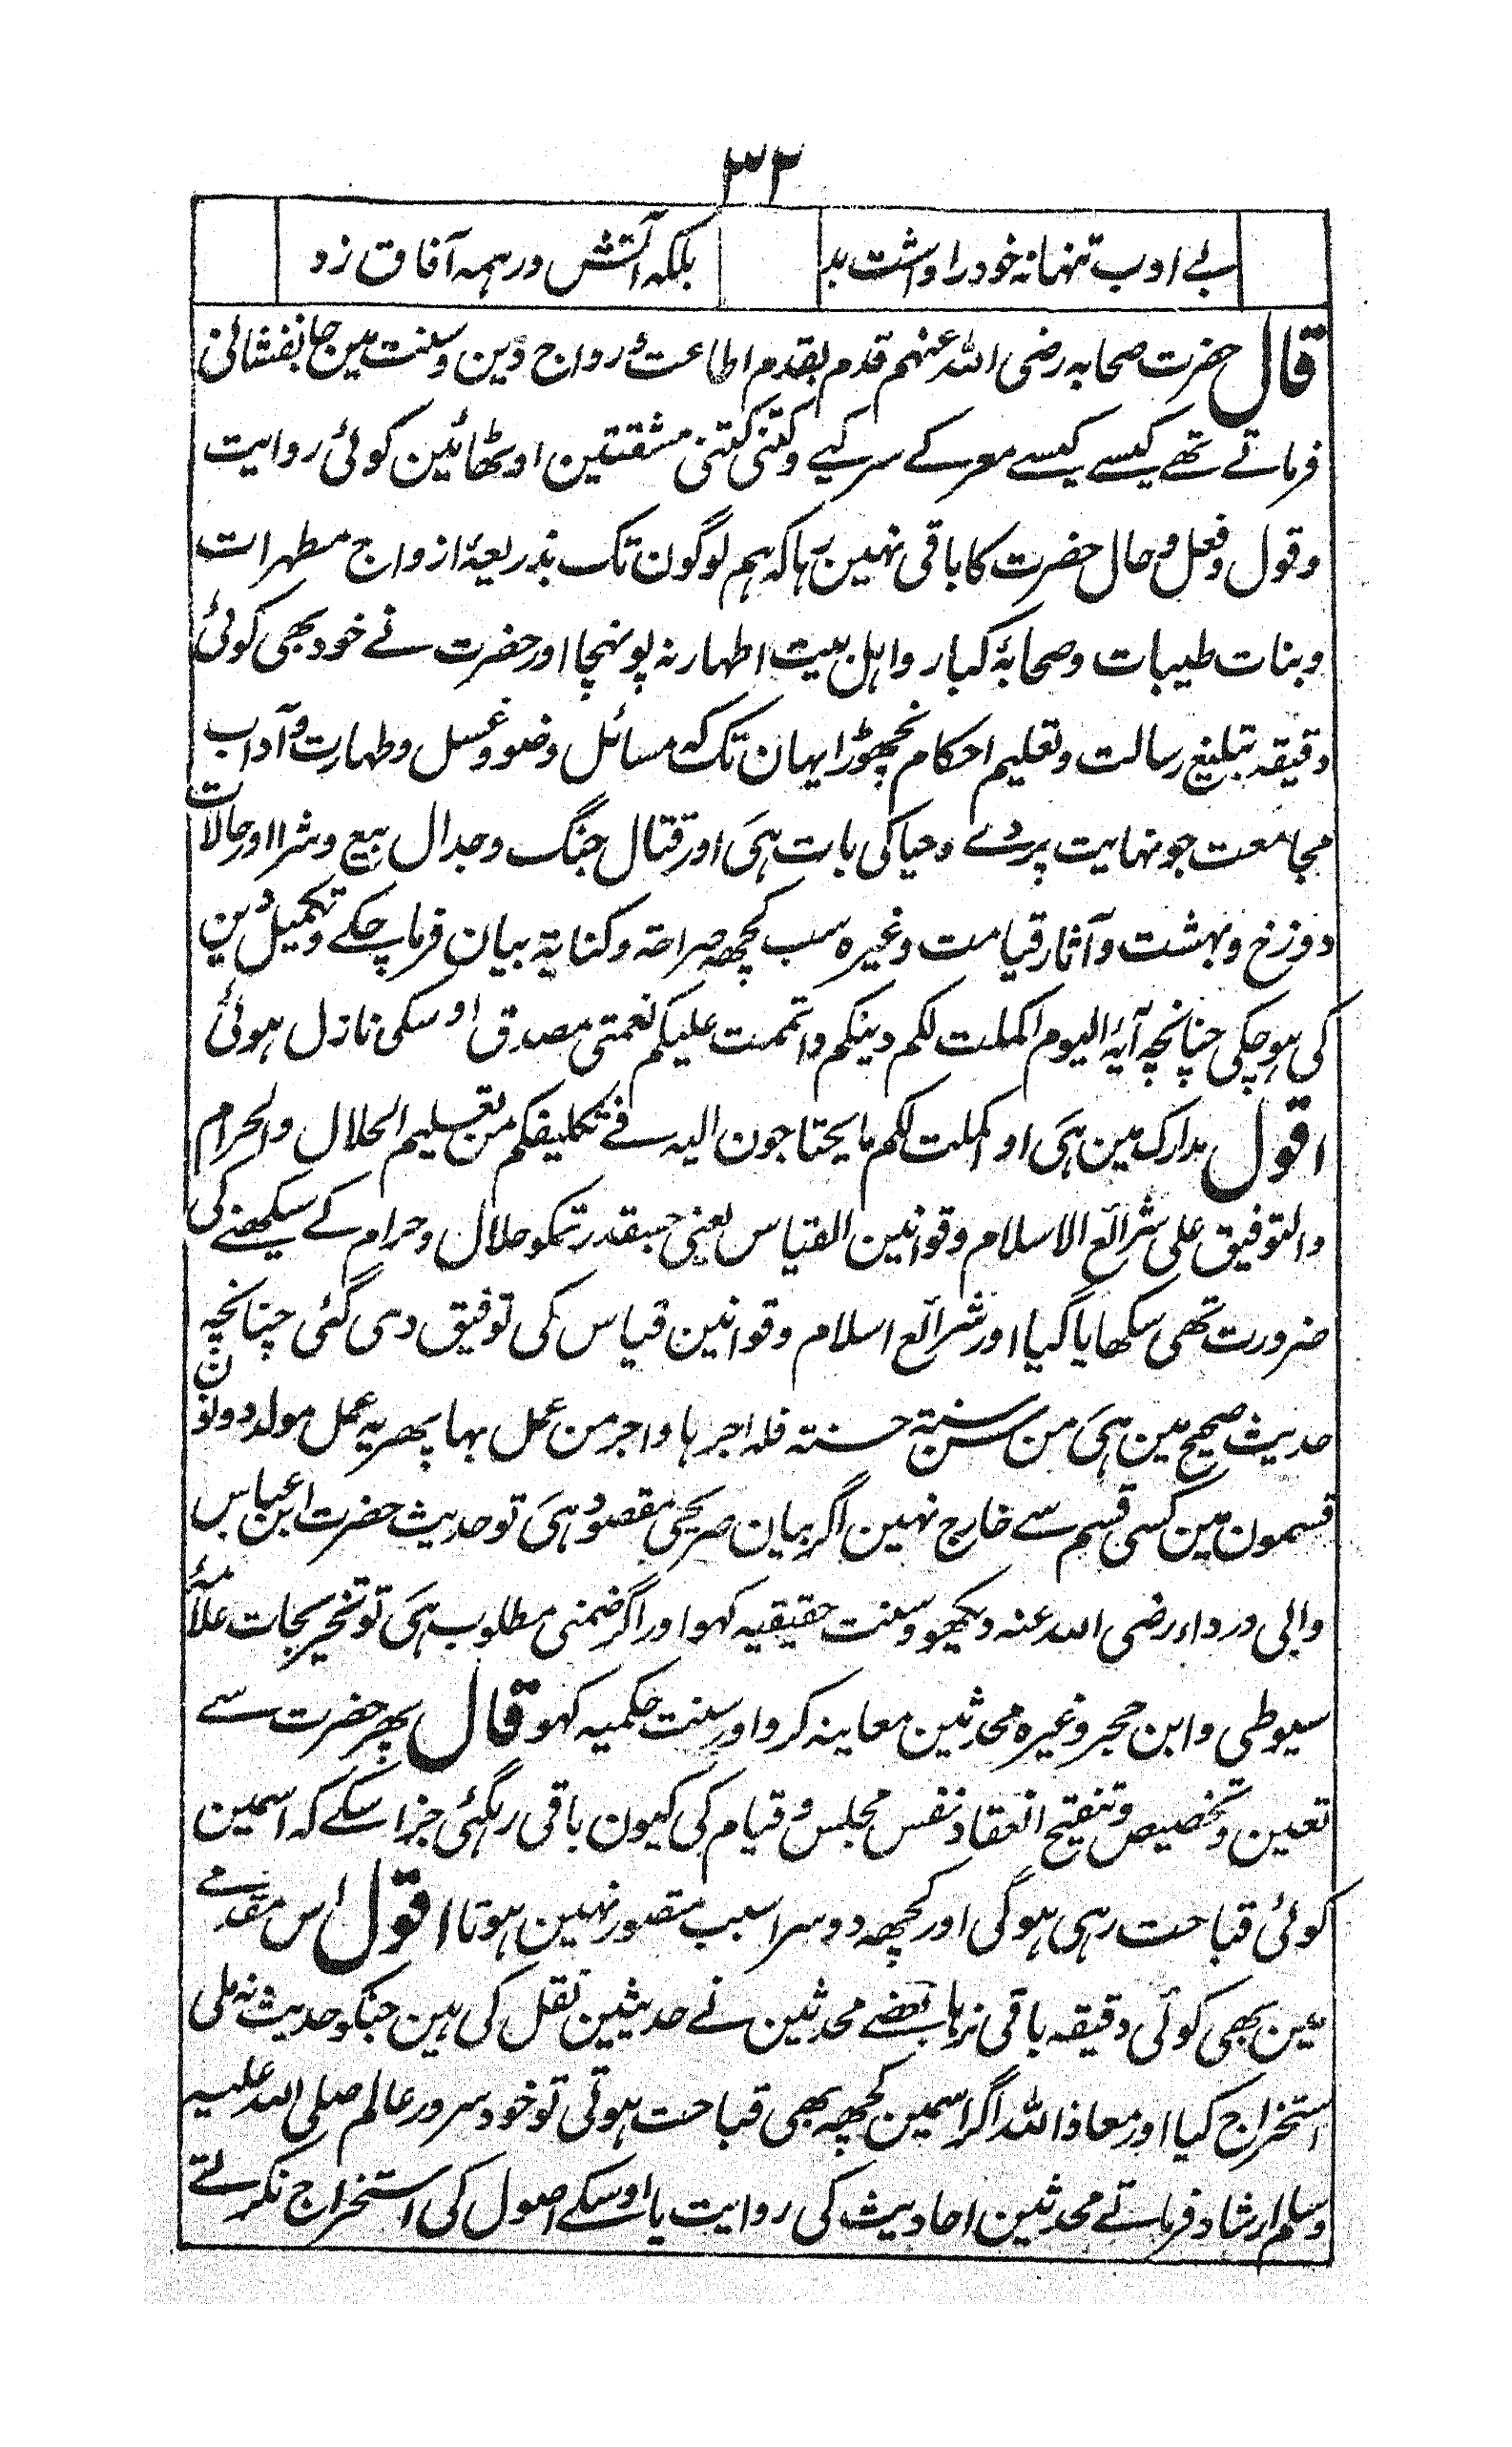 ۳۳
بے ادب تنہا نہ خود را داشت بد بلکہ آتش در ہمہ آفاق زد
قال حضرت صحابہ رضی اللہ عنہم قدم بقدم اطاعت و رواج دین و سنت مین جانفشانی
فرماتے تھے کیسے کیسے معرکے سر کیے و کتنی کتنی مشقتین اوٹھائین کوئی روایت
و قول و فعل و حال حضرت کا باقی نہین رہا کہ ہم لوگون تک بذریعۂ ازواج مطہرات
و بنات طیبات و صحابۂ کبار و اہل بیت اطہار نہ پونہچا اور حضرت نے خود بھی کوئی
دقیقہ تبلیغ رسالت و تعلیم احکام نچھوڑا یہان تک کہ مسائل وضو و غسل و طہارت و آداب
مجامعت جو نہایت پردے و حیا کی بات ہی اور قتال جنگ و جدال بیع و شرا اور حالات
دوزخ و بہشت و آثار قیامت وغیرہ سب کچھہ صراحۃ و کنایۃ بیان فرما چکے و تکمیل دین
کی ہو چکی چنانچہ آیۂ الیوم اکملت لکم دینکم و اتممت علیکم نعمتی مصدق اوسکی نازل ہوئی
اقول مدارک مین ہی او اکملت لکم ما یحتاجون الیہ فے تکلیفکم من تعلیم الحلال والحرام
والتوفیق علی شرائع الاسلام و قوانین القیاس یعنی جسقدر تمکو حلال و حرام کے سیکھنے کی
ضرورت تھی سکھایا گیا اور شرائع اسلام و قوانین قیاس کی توفیق دی گئی چنانچہ
حدیث صحیح مین ہی من سن سنۃ حسنۃ فلہ اجرہا و اجر من عمل بہا پھر یہ عمل مولد دونون
قسمون مین کسی قسم سے خارج نہین اگر بیان صریحی مقصود ہی تو حدیث حضرت ابن عباس
و ابی درداء رضی اللہ عنہ دیکھو و سنت حقیقیہ کہو اور اگر ضمنی مطلوب ہی تو تخریجات علامۂ
سیوطی و ابن حجر وغیرہ محدثین معاینہ کرو اور سنت حکمیہ کہو قال پھر حضرت سے
تعین و تخصیص و تنقیح انعقاد نفس مجلس و قیام کی کیون باقی رہگئی جز اسکے کہ اسمین
کوئی قباحت رہی ہوگی اور کچھہ دوسرا سبب متصور نہین ہوتا اقول اس مقدمے
مین بھی کوئی دقیقہ باقی نرہا بعضے محدثین نے حدیثین نقل کی ہین جنکو حدیث نہ ملی
استخراج کیا اور معاذ اللہ اگر اسمین کچھہ بھی قباحت ہوتی تو خود سرور عالم صلی اللہ علیہ
وسلم ارشاد فرماتے محدثین احادیث کی روایت یا اوسکے اصول کی استخراج نکرتے